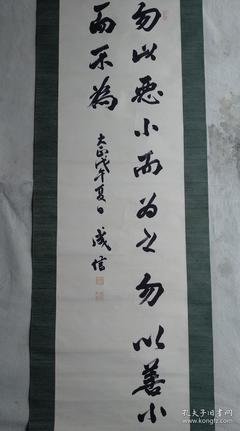 勿以恶小而为之勿以善小
而不為
大正戊午夏日 成信
孔夫子旧书网